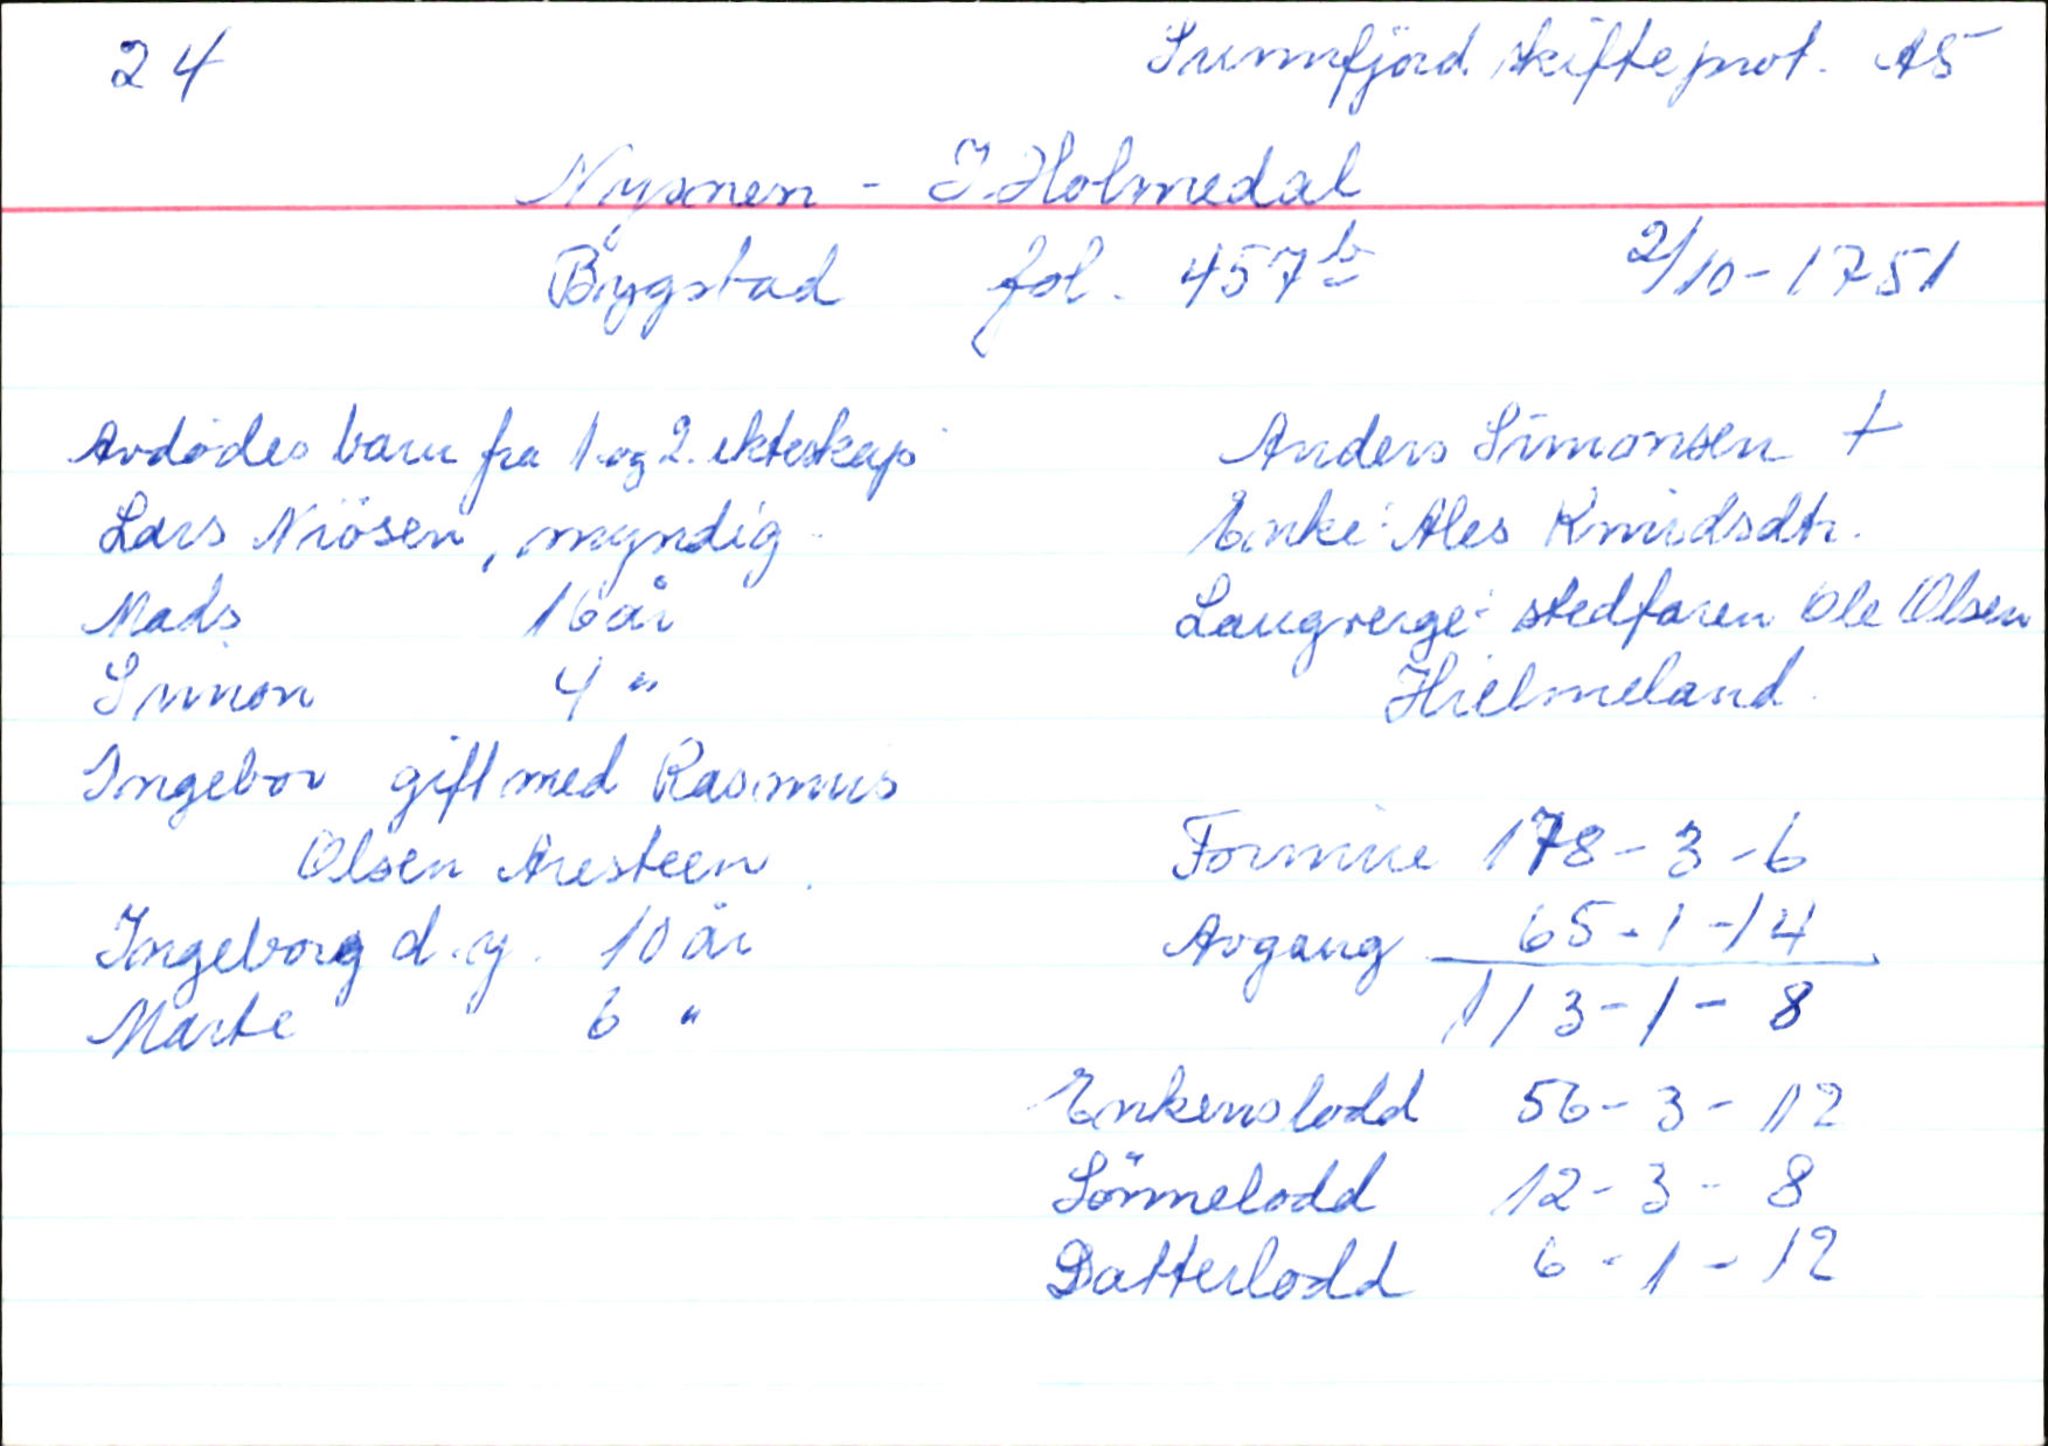 24
Sunnfjord skifteprot. A5
Nysnen - I. Holmedal
Bygstad fol. 457b 2/10-1751
Avdødes barn fra 1. og 2. ekteskap
Lars Niösen, myndig.
Mads 16 år
Simon 4 "
Ingebor gift med Rasmus
Olsen Aresteen.
Ingeborg d.y. 10 år
Marte 6 "
Anders Simonsen +
Enke: Ales Knudsdtr.
Laugverge: stedfaren Ole Olsen
Hielmeland.
Formue 178-3-6
Avgang 65-1-14
113-1-8
Enkens lodd 56-3-12
Sönnelodd 12-3-8
Datterlodd 6-1-12